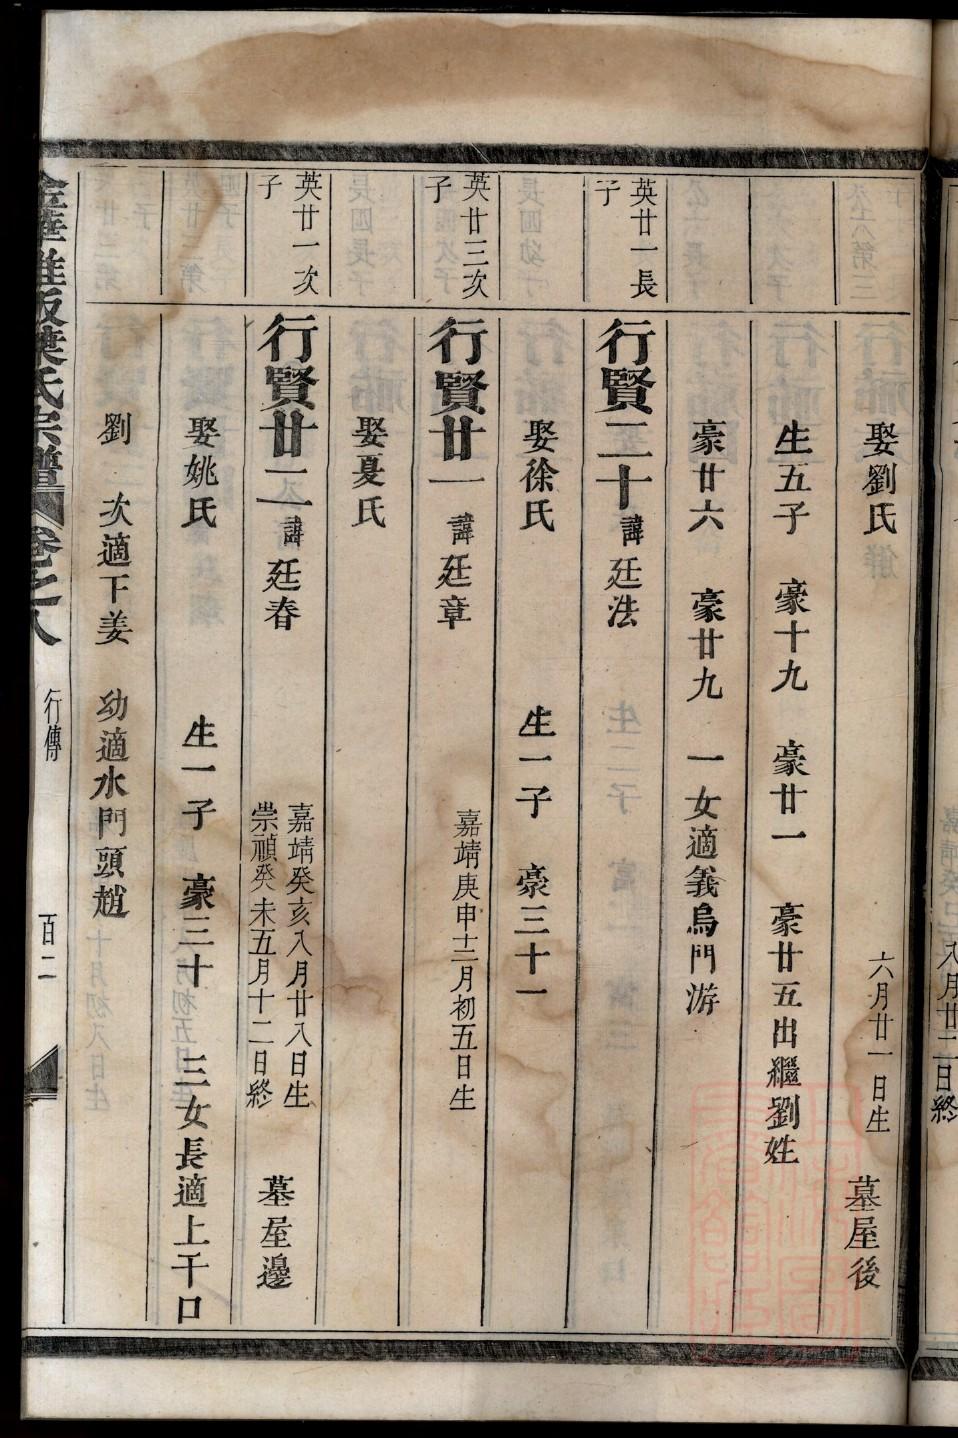 娶劉氏 六月廿一日生 墓屋後
生五子 豪十九 豪廿一 豪廿五出繼劉姓
豪廿六 豪廿九 一女適義烏門游
英廿一長子
行賢二十 諱廷法
娶徐氏 生一子 豪三十一
英廿三次子
行賢廿一 諱廷章 嘉靖庚申十二月初五日生
娶夏氏
英廿一次子
行賢廿二 諱廷春 嘉靖癸亥八月廿八日生 崇禎癸未五月十二日終 墓屋邊
娶姚氏 生一子 豪三十 三女長適上干口
劉 次適下姜 幼適水門頭趙
氏宗譜 卷之八 行傳 百二
八月廿二日終